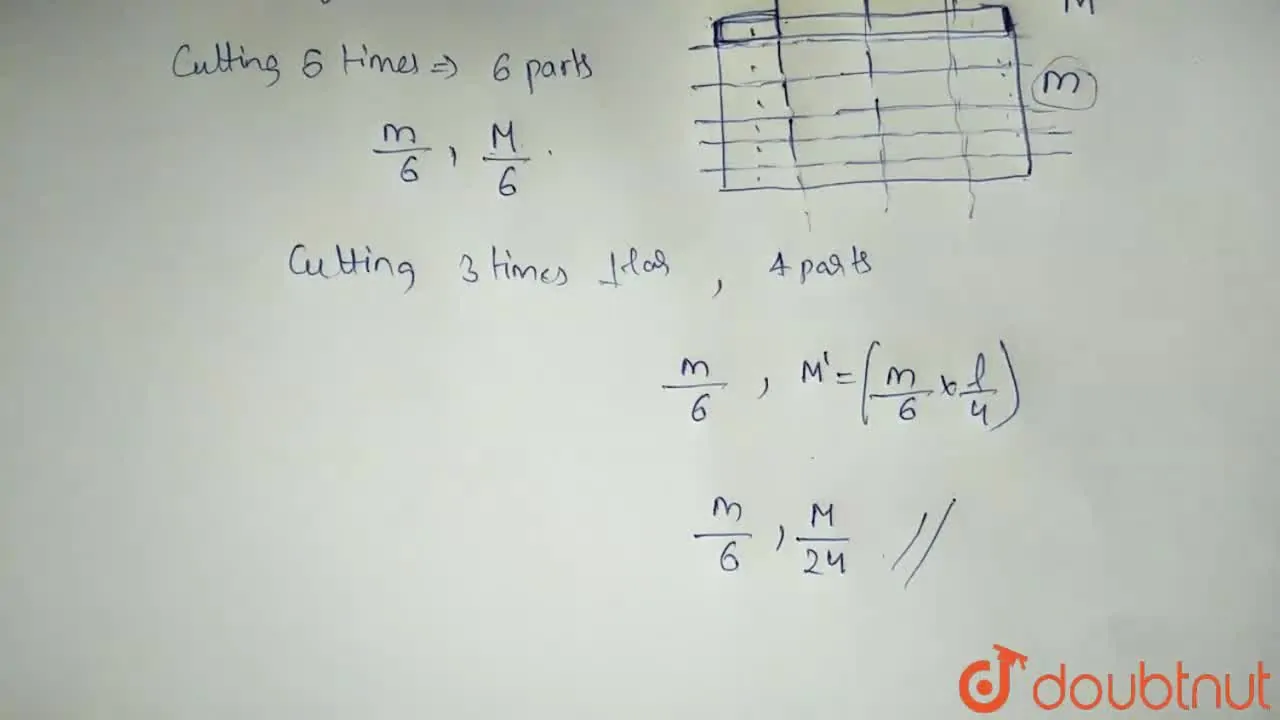 M
Cutting 5 times ⇒ 6 parts
m
m/6 , M/6 .
Cutting 3 times , 4 parts
m/6 , M' = (m/6 × 1/4)
m/6 , M/24 //
doubtnut